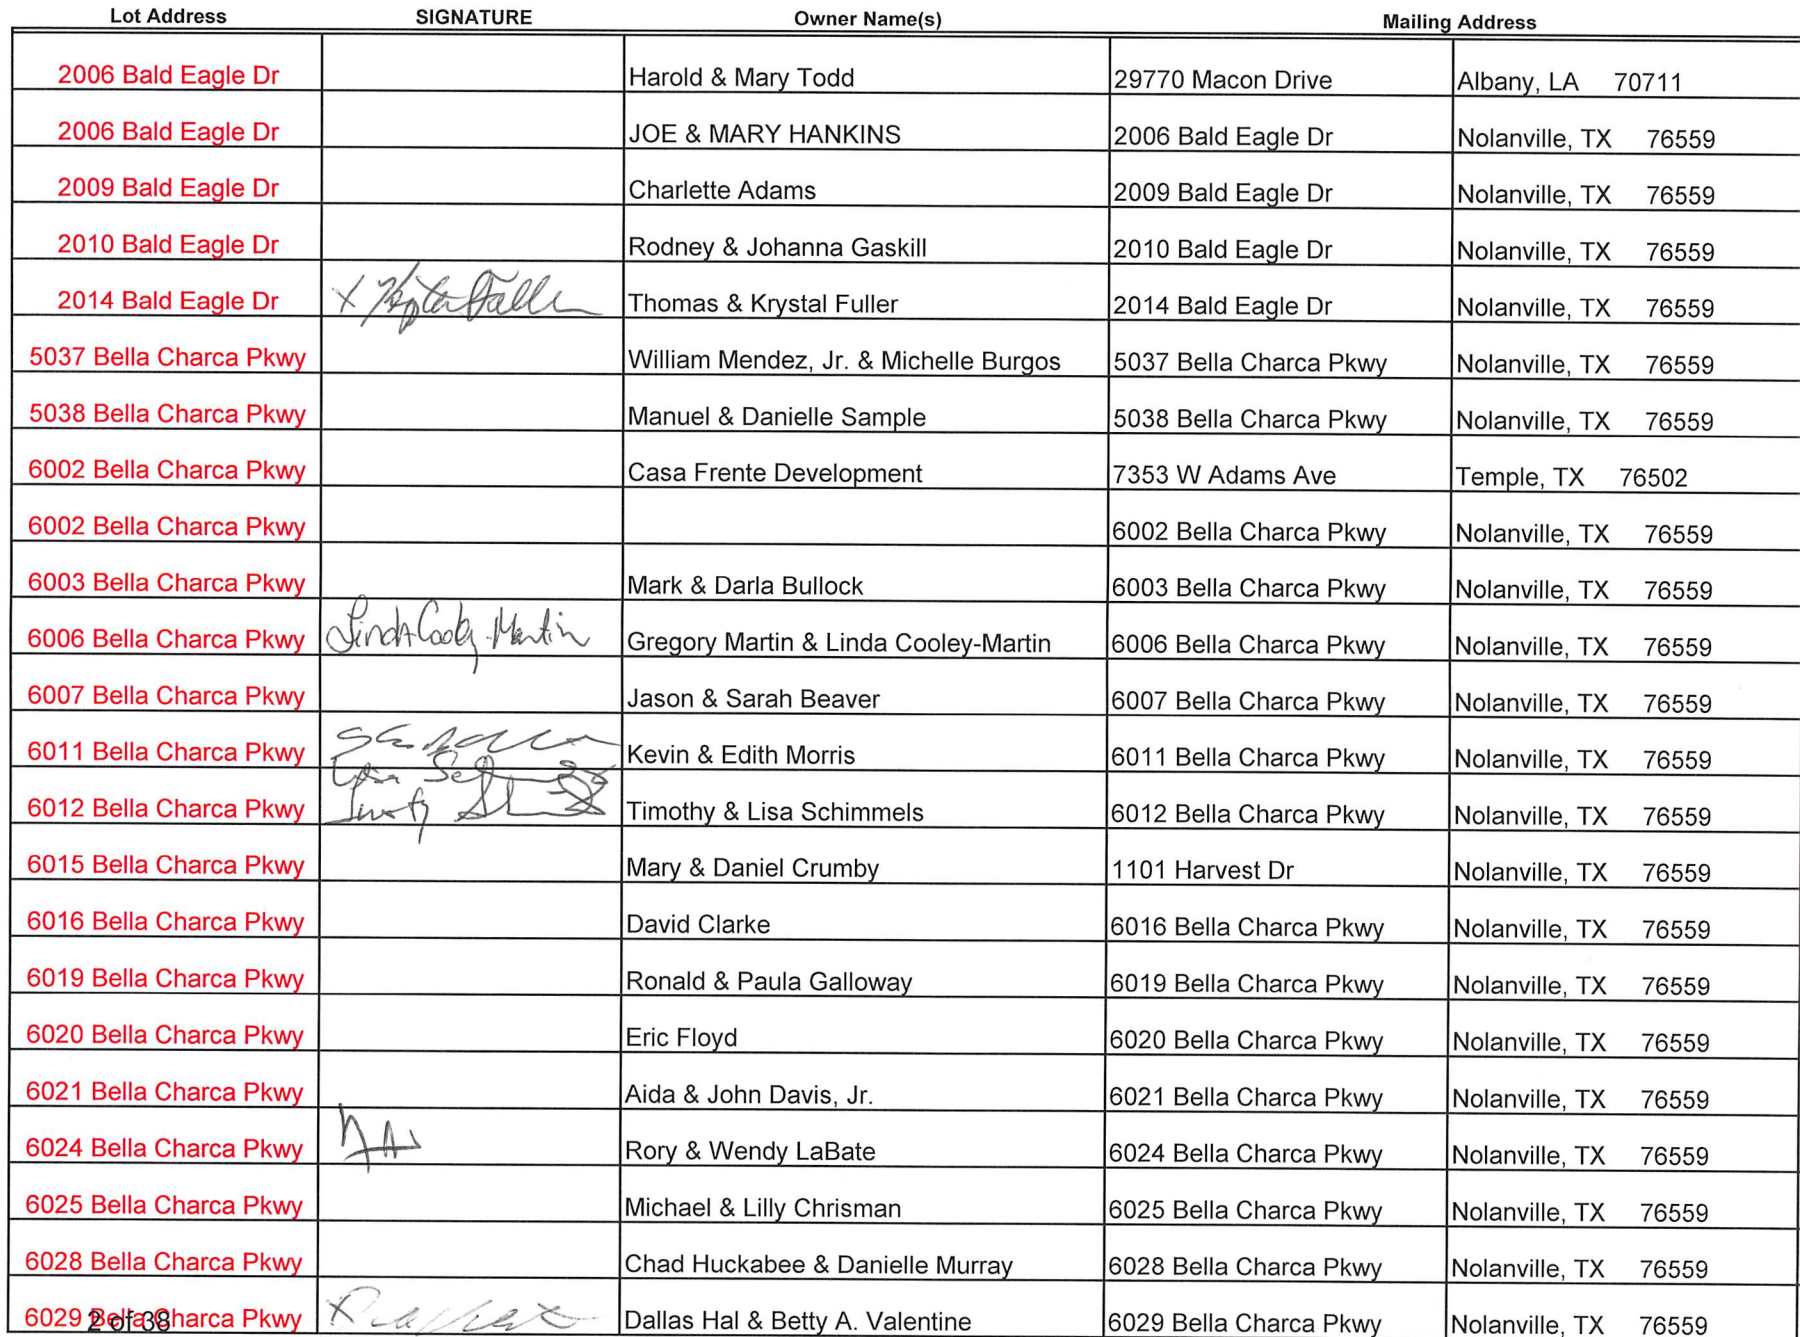 Lot Address SIGNATURE Owner Name(s) Mailing Address
2006 Bald Eagle Dr Harold & Mary Todd 29770 Macon Drive Albany, LA 70711
2006 Bald Eagle Dr JOE & MARY HANKINS 2006 Bald Eagle Dr Nolanville, TX 76559
2009 Bald Eagle Dr Charlette Adams 2009 Bald Eagle Dr Nolanville, TX 76559
2010 Bald Eagle Dr Rodney & Johanna Gaskill 2010 Bald Eagle Dr Nolanville, TX 76559
2014 Bald Eagle Dr X Thomas & Krystal Fuller 2014 Bald Eagle Dr Nolanville, TX 76559
5037 Bella Charca Pkwy William Mendez, Jr. & Michelle Burgos 5037 Bella Charca Pkwy Nolanville, TX 76559
5038 Bella Charca Pkwy Manuel & Danielle Sample 5038 Bella Charca Pkwy Nolanville, TX 76559
6002 Bella Charca Pkwy Casa Frente Development 7353 W Adams Ave Temple, TX 76502
6002 Bella Charca Pkwy 6002 Bella Charca Pkwy Nolanville, TX 76559
6003 Bella Charca Pkwy Mark & Darla Bullock 6003 Bella Charca Pkwy Nolanville, TX 76559
6006 Bella Charca Pkwy Linda Cooley-Martin Gregory Martin & Linda Cooley-Martin 6006 Bella Charca Pkwy Nolanville, TX 76559
6007 Bella Charca Pkwy Jason & Sarah Beaver 6007 Bella Charca Pkwy Nolanville, TX 76559
6011 Bella Charca Pkwy Kevin & Edith Morris 6011 Bella Charca Pkwy Nolanville, TX 76559
6012 Bella Charca Pkwy Lisa Timothy & Lisa Schimmels 6012 Bella Charca Pkwy Nolanville, TX 76559
6015 Bella Charca Pkwy Mary & Daniel Crumby 1101 Harvest Dr Nolanville, TX 76559
6016 Bella Charca Pkwy David Clarke 6016 Bella Charca Pkwy Nolanville, TX 76559
6019 Bella Charca Pkwy Ronald & Paula Galloway 6019 Bella Charca Pkwy Nolanville, TX 76559
6020 Bella Charca Pkwy Eric Floyd 6020 Bella Charca Pkwy Nolanville, TX 76559
6021 Bella Charca Pkwy Aida & John Davis, Jr. 6021 Bella Charca Pkwy Nolanville, TX 76559
6024 Bella Charca Pkwy Rory & Wendy LaBate 6024 Bella Charca Pkwy Nolanville, TX 76559
6025 Bella Charca Pkwy Michael & Lilly Chrisman 6025 Bella Charca Pkwy Nolanville, TX 76559
6028 Bella Charca Pkwy Chad Huckabee & Danielle Murray 6028 Bella Charca Pkwy Nolanville, TX 76559
6029 Bella Charca Pkwy Dallas Hal & Betty A. Valentine 6029 Bella Charca Pkwy Nolanville, TX 76559
2 of 38